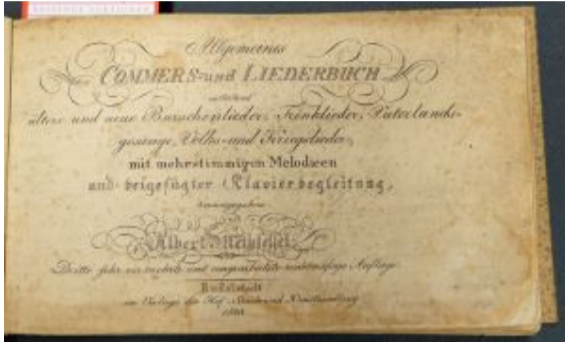 Allgemeines
COMMERS- und LIEDERBUCH
enthaltend
ältere und neue Burschenlieder, Trinklieder, Vaterlands-
gesänge, Volks- und Kriegslieder,
mit mehrstimmigen Melodieen
und beigefügter Clavierbegleitung,
herausgegeben
Albert Methfessel.
Dritte sehr vermehrte und umgearbeitete rechtmässige Auflage
Rudolstadt
im Verlage der Hof- Buch und Kunsthandlung